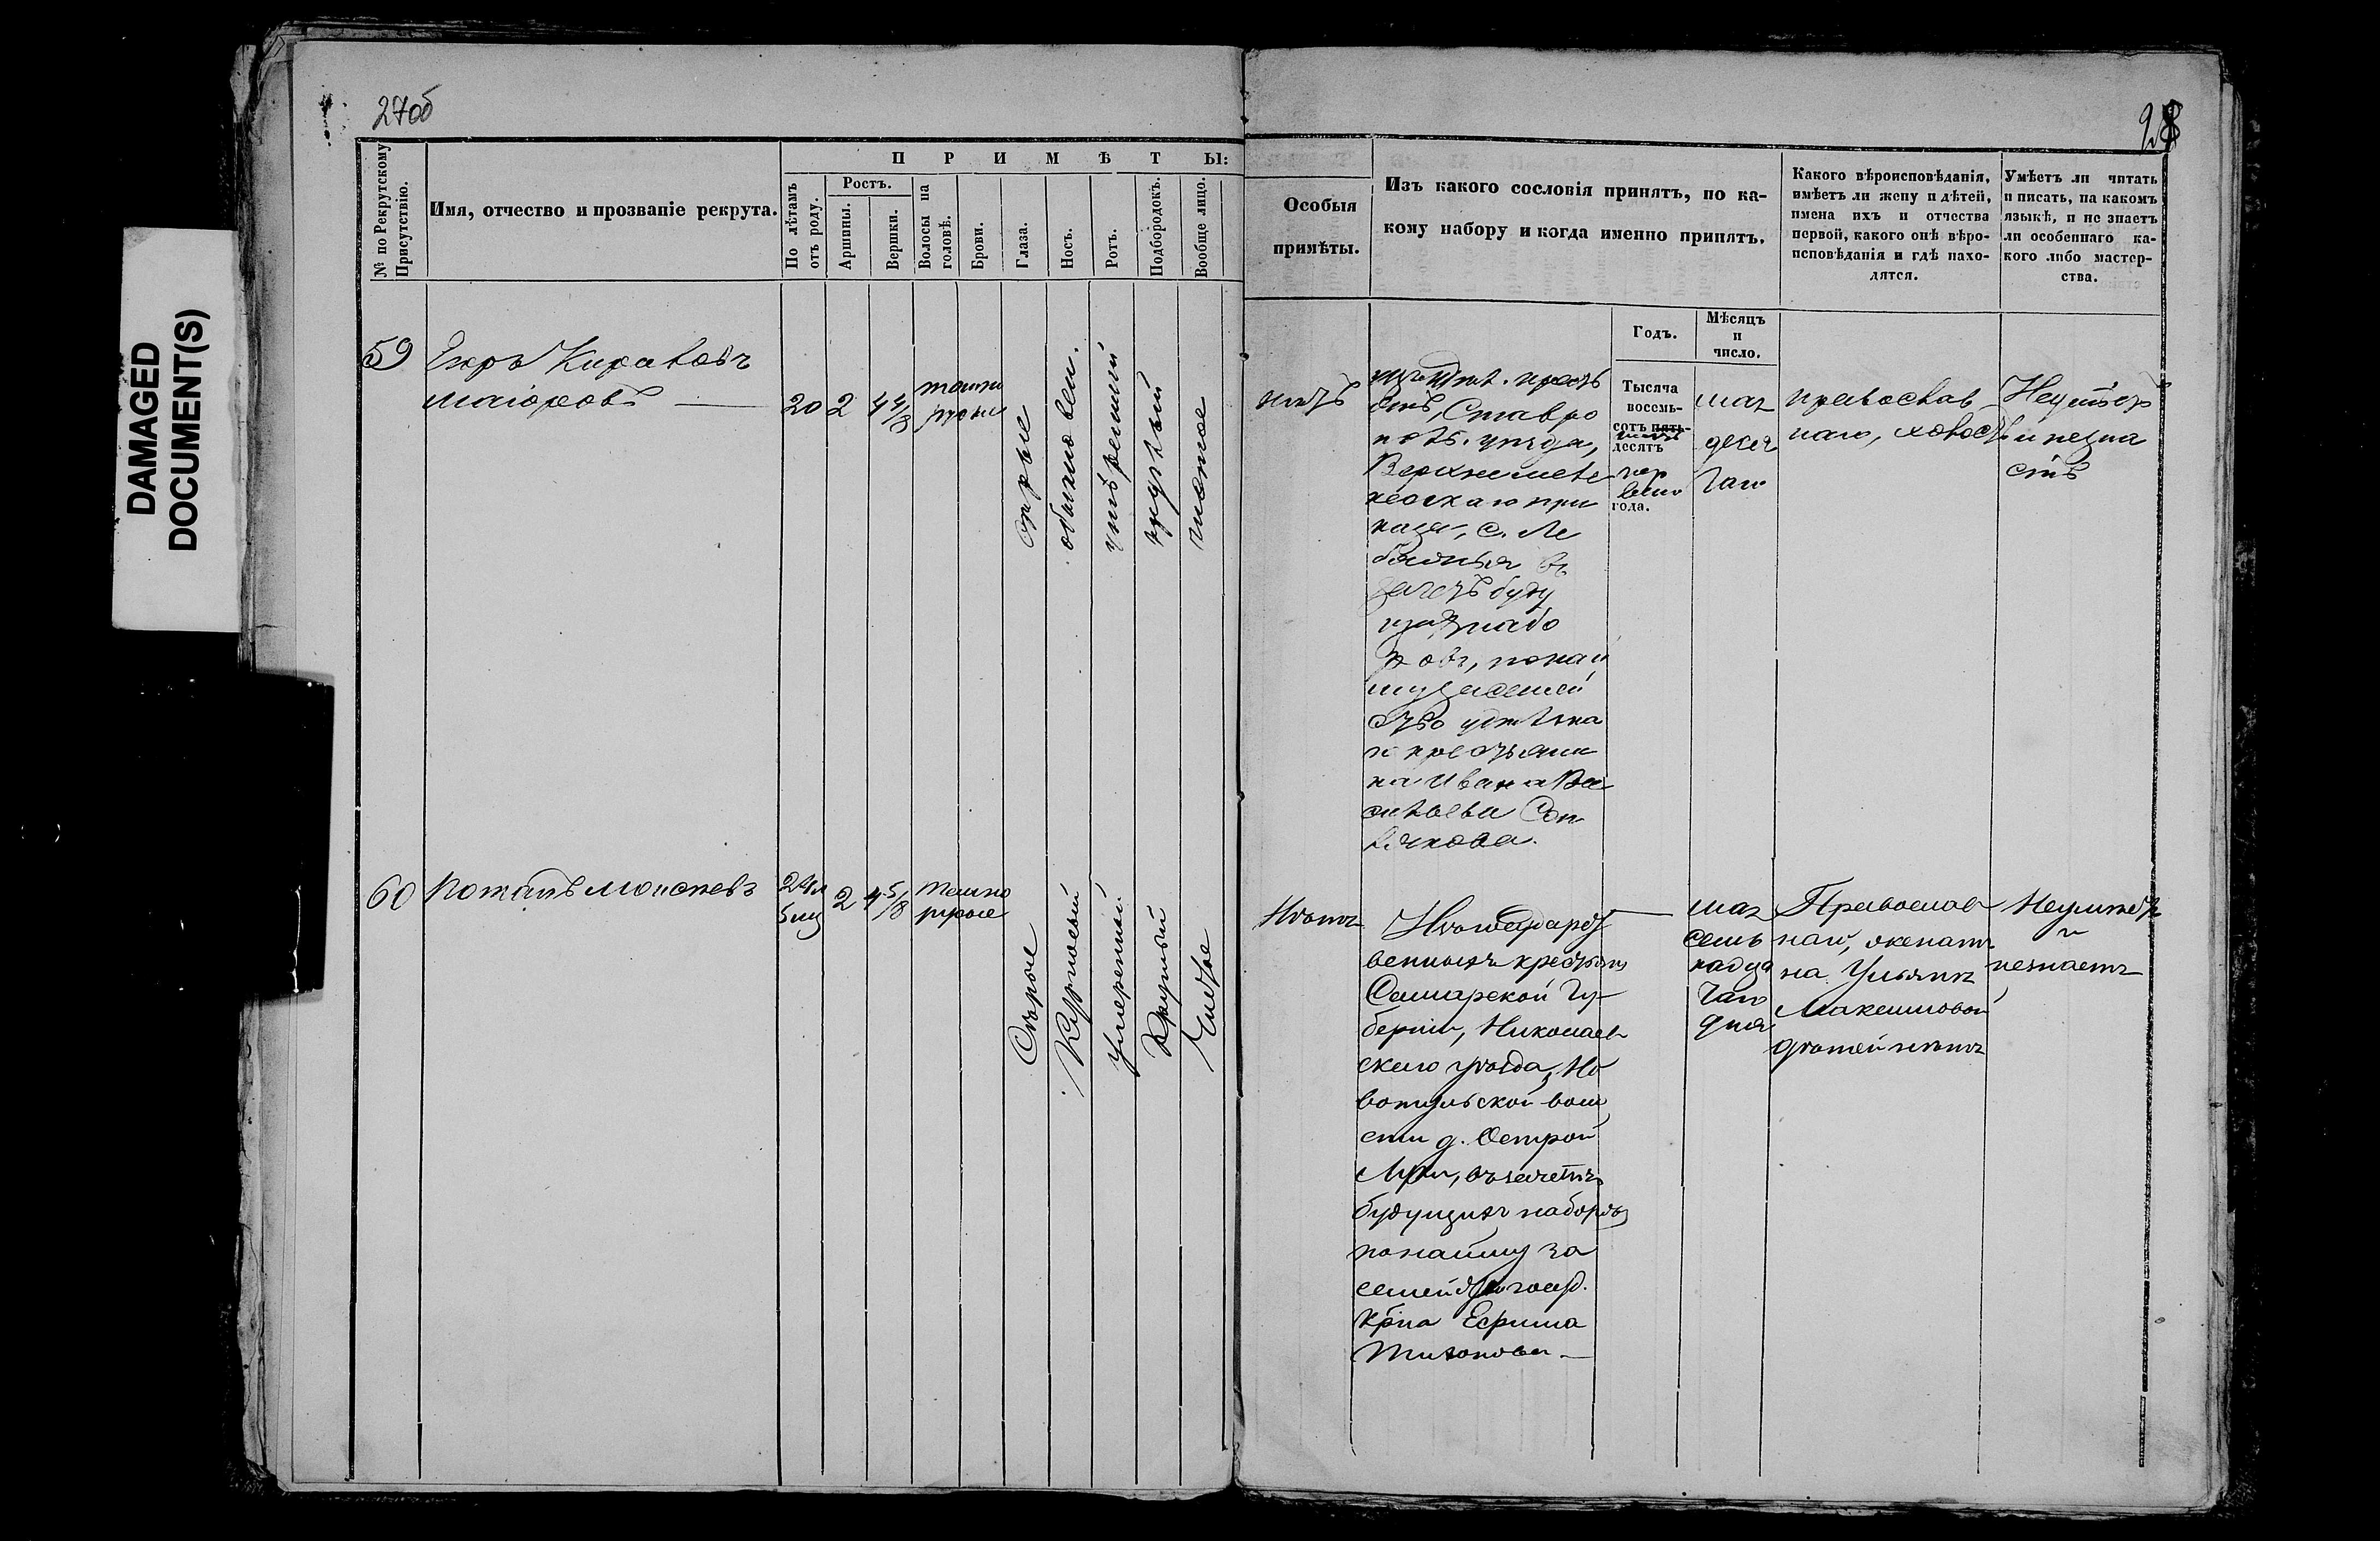 DAMAGED
DOCUMENT(S)
27об
28
№ по Рекрутскому
Присутствію.
Имя, отчество и прозваніе рекрута.
ПРИМѢТЫ:
По лѣтамъ
отъ роду.
Ростъ.
Аршины.
Вершки.
Волосы на
головѣ.
Брови.
Глаза.
Носъ.
Ротъ.
Подбородокъ.
Вообще лицо.
Особыя
примѣты.
Изъ какого сословія принятъ, по ка-
кому набору и когда именно принятъ.
Какого вѣроисповѣданія,
имѣетъ ли жену и дѣтей,
имена ихъ и отчества
первой, какого онѣ вѣро-
исповѣданія и гдѣ нахо-
дятся.
Умѣетъ ли читать
и писать, на какомъ
языкѣ, и не знаетъ
ли особеннаго ка-
кого либо мастер-
ства.
Годъ.
Мѣсяцъ
и
число.
59
Егоръ
Маіоровъ
20
2
4 4/8
темно
русые
сѣрые
обыкновен.
умѣренный
круглый
чистое
нѣтъ
крестъ
янъ, Ставро
пол. уѣзда,
при
каза, с. Ле
бяжья въ
зачетъ буду
щихъ набо
ровъ, по най
му за семей
ство удѣльна
го крестьяни
на Ивана Ва
сильева
Тысяча
восемь-
сотъ пять-
десятъ
пер
ваго
года.
мая
деся
таго
православ
наго, холостъ
Неумѣетъ
и незна
етъ
60
Потапъ Моисеевъ
24 л
5 мѣ
2
4 5/8
темно
русые
Сѣрые
Курносый
Умеренный
Круглый
Чистое
Нѣтъ
Изъ государст
венныхъ крестьянъ
Самарской Гу-
берніи, Николаев
скаго уѣзда, Но
вотульской воло
сти д. Острой
Луки, въ зачетъ
будущихъ наборовъ
по найму за
семейство госуд.
кр-на Ефима
Тихонова —
мая
семь
надца
таго
дня
Православ
наго, женатъ
на Ульянѣ
Максимовой
дѣтей нѣтъ
Неумѣетъ
и
незнаетъ